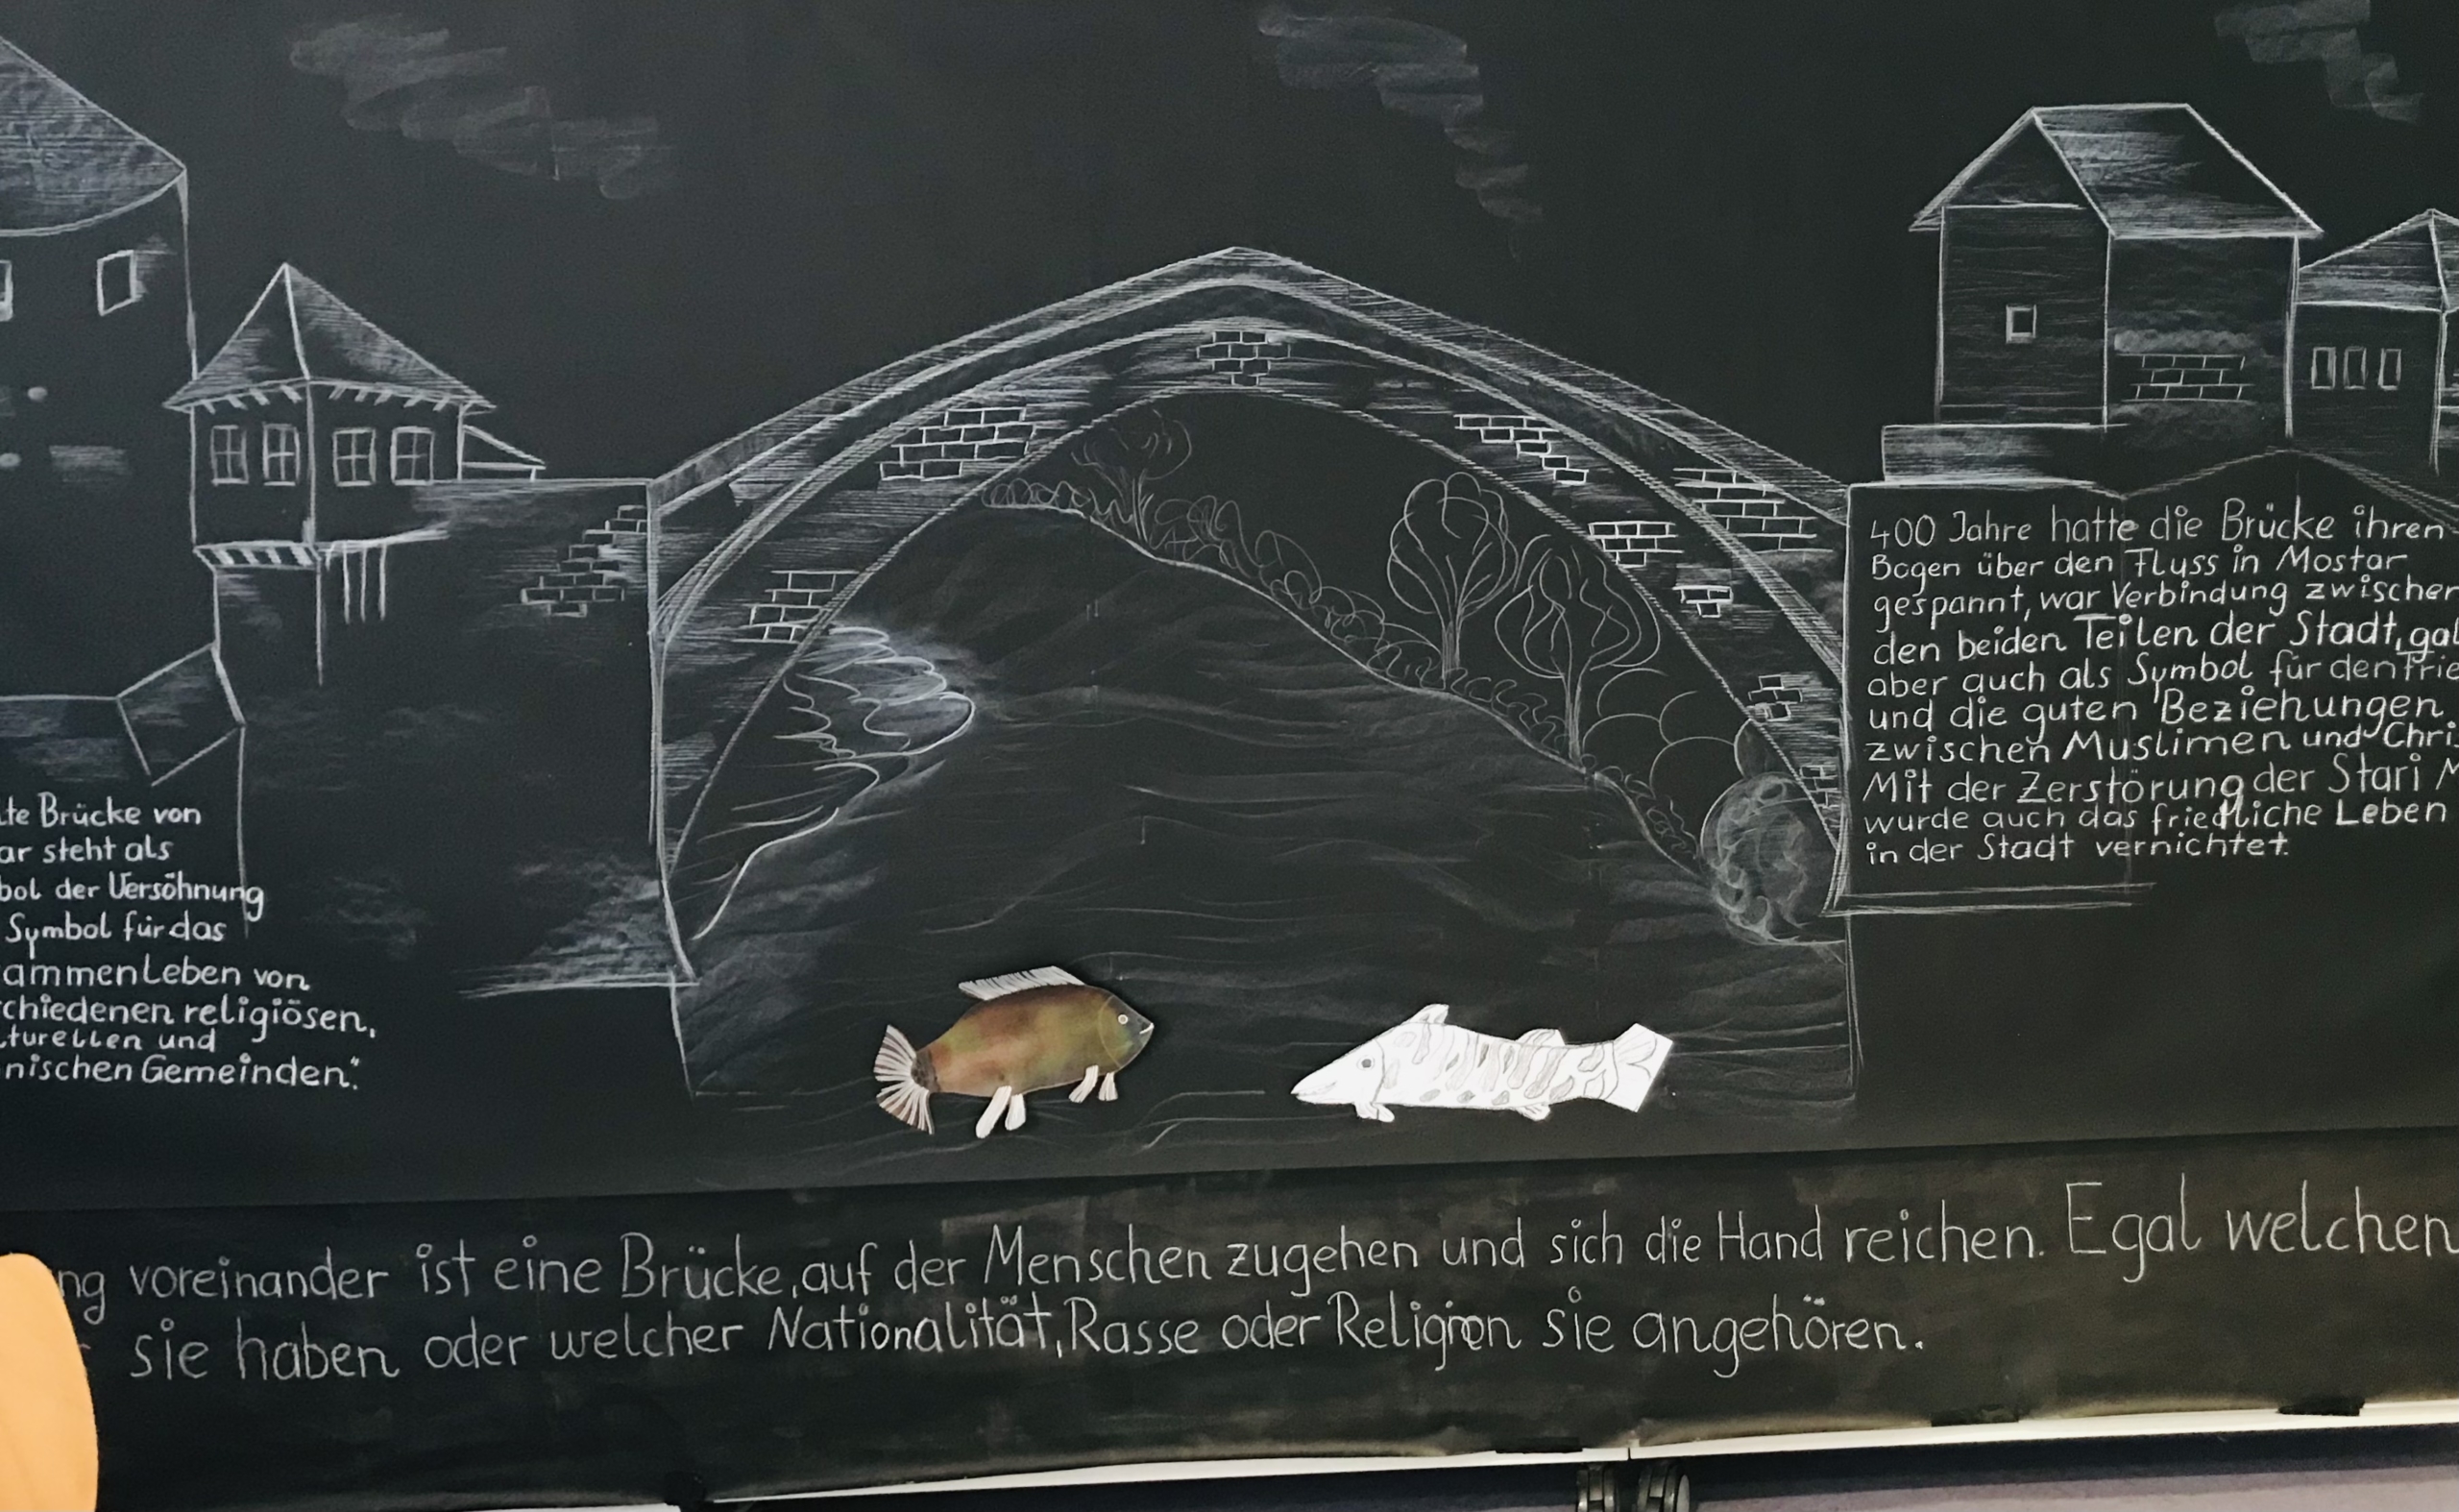 te Brücke von
ar steht als
bol der Versöhnung
Symbol für das
ammenleben von
chiedenen religiösen,
turellen und
nischen Gemeinden."
400 Jahre hatte die Brücke ihren
Bogen über den Fluss in Mostar
gespannt, war Verbindung zwischen
den beiden Teilen der Stadt, gal
aber auch als Symbol für den Frie
und die guten Beziehungen
zwischen Muslimen und Chri
Mit der Zerstörung der Stari M
wurde auch das friedliche Leben
in der Stadt vernichtet.
ng voreinander ist eine Brücke, auf der Menschen zugehen und sich die Hand reichen. Egal welchen
sie haben oder welcher Nationalität, Rasse oder Religion sie angehören.